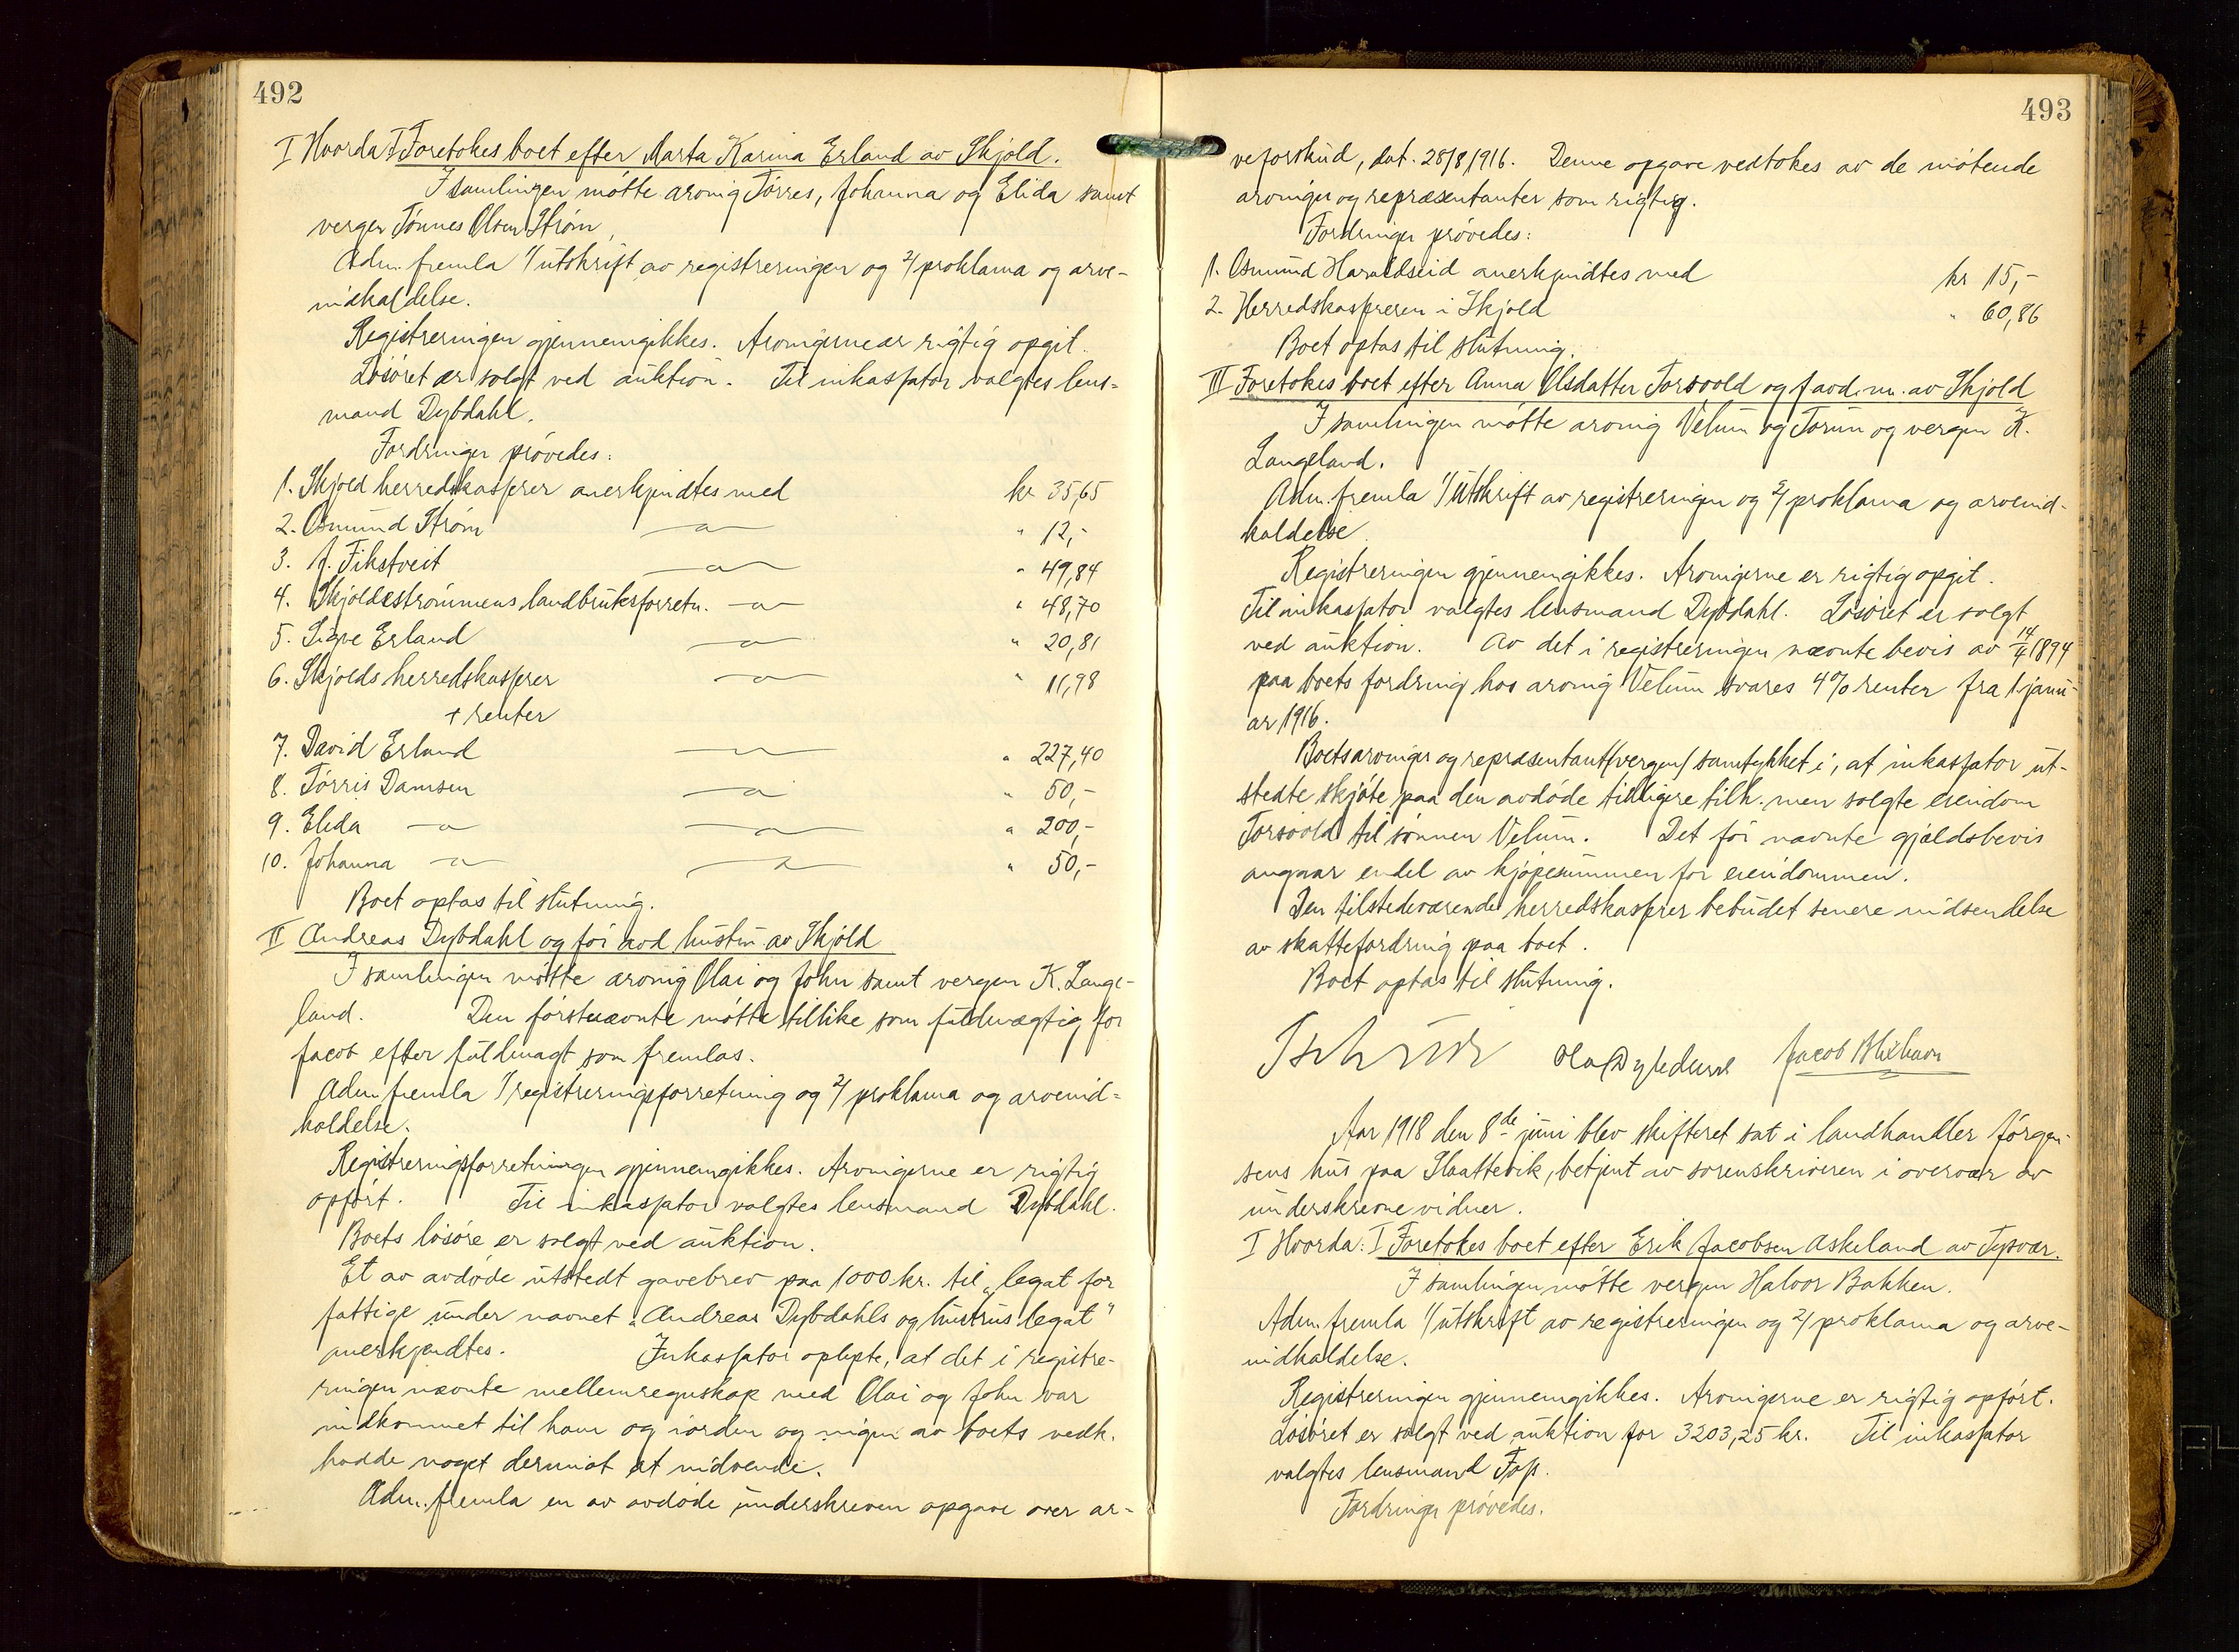 492
I Hvorda I Foretokes boet efter Marta Karina Erland av Skjold.
I samlingen møtte arving Tørres, Johanna og Elida samt
vergen Tønnes Olsen Strøm,
Adm. fremla 1/ utskrift av registreringen og 2/ proklama og arve-
indkaldelse.
Registreringen gjennemgikkes. Arvingerne er rigtig opgit.
Løsøret er solgt ved auktion. Til inkassator valgtes lens-
mand Dybdahl.
Fordringer prøvedes:
1. Skjold herredskasserer anerkjendtes med kr 35,65
2. Osmund Strøm —"— " 12,-
3. J. Fikstveit —"— " 49,84
4. Skjoldestrømmens landbruksforretn. —"— " 48,70
5. Sigve Erland —"— " 20,81
6. Skjolds herredskasserer —"— " 11,98
+ renter
7. David Erland —"— " 227,40
8. Tørris Damsen —"— " 50,-
9. Elida —"— —"— " 200,-
10. Johanna —"— —"— " 50,-
Boet optas til slutning.
II Andreas Dybdahl og før avd. hustru av Skjold
I samlingen møtte arving Olai og John samt vergen K. Lange-
land. Den førstnævnte møtte tillike som fuldmægtig for
Jacob efter fuldmagt som fremlas.
Adm. fremla 1/ registreringsforretning og 2/ proklama og arveind-
kaldelse.
Registreringsforretningen gjennemgikkes. Arvingerne er rigtig
opført. Til inkassator valgtes lensmand Dybdahl.
Boets løsøre er solgt ved auktion.
Et av avdøde utstedt gavebrev paa 1000 kr. til „legat for
fattige under navnet „Andreas Dybdahls og hustrus legat"
anerkjendtes. Inkassator oplyste, at det i registre-
ringen nævnte mellemregnskap med Olai og John var
indkommet til ham og iorden og ingen av boets vedk.
hadde noget derimot at indvende.
Adm. fremla en av avdøde underskreven opgave over ar-
493
veforskud, dat. 28/8 1916. Denne opgave vedtokes av de møtende
arvinger og repræsentanter som rigtig.
Fordringer prøvedes:
1. Osmund Haraldseid anerkjendtes med kr 15,-
2. Herredskassereren i Skjold " 60,86
Boet optas til slutning.
III Foretokes boet efter Anna Olsdatter Torsvold og f. avd. m. av Skjold
I samlingen møtte arving Velum og Torun og vergen K.
Langeland.
Adm. fremla 1/ utskrift av registreringen og 2/ proklama og arveind-
kaldelse.
Registreringen gjennemgikkes. Arvingerne er rigtig opgit.
Til inkassator valgtes lensmand Dybdahl. Løsøret er solgt
ved auktion. Av det i registreringen nævnte bevis av 14/4 1894
paa boets fordring hos arving Velum svares 4% renter fra 1. janu-
ar 1916.
Boets arvinger og repræsentant (vergen) samtykket i, at inkassator ut-
stedte skjøte paa den avdøde tidligere tilh. men solgte eiendom
Torsvold til sønnen Velum. Det før nævnte gjældsbevis
angaar endel av kjøpesummen for eiendommen.
Den tilstedeværende herredskasserer bebudet senere indsendelse
av skattefordring paa boet.
Boet optas til slutning.
Jacob Blikhavn
Aar 1918 den 8de juni blev skifteret sat i landhandler Jørgen-
sens hus paa Slaattevik, betjent av sorenskriveren i overvær av
underskrevne vidner.
I Hvorda: I Foretokes boet efter Erik Jacobsen Askeland av Tysvær.
I samlingen møtte vergen Halvor Bakken.
Adm. fremla 1/ utskrift av registreringen og 2/ proklama og arve-
indkaldelse.
Registreringen gjennemgikkes. Arvingerne er rigtig opført.
Løsøret er solgt ved auktion for 3203,25 kr. Til inkassator
valgtes lensmand Fos.
Fordringer prøvedes.